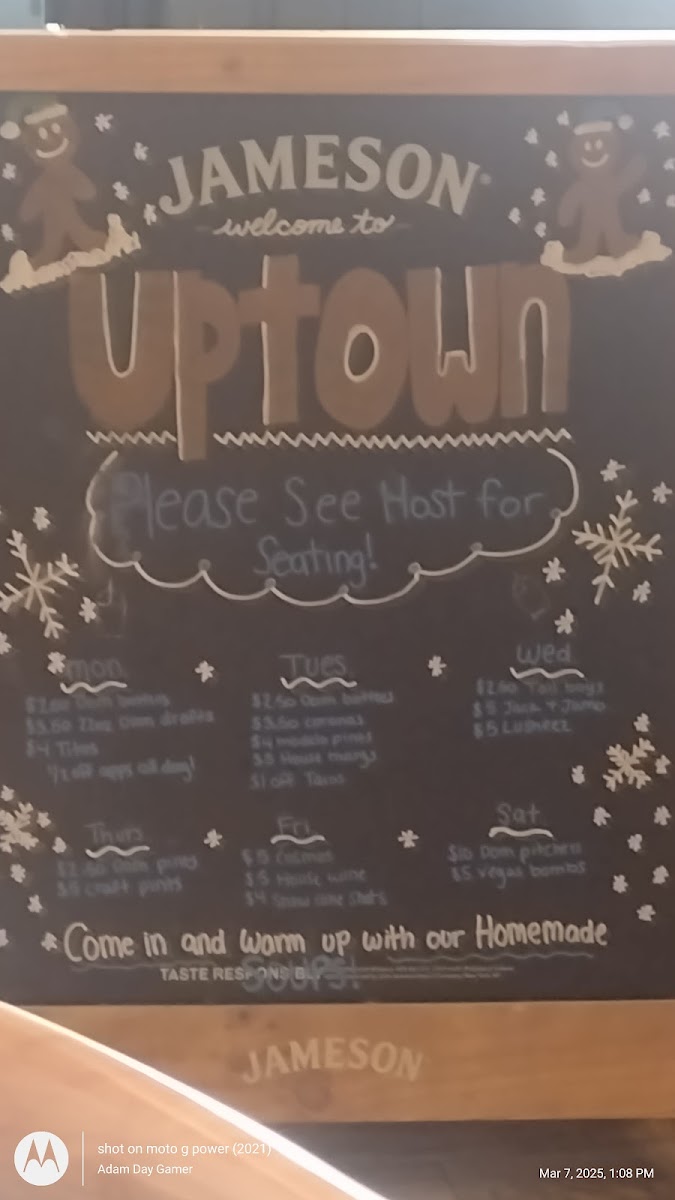 JAMESON
welcome to
uptown
Please See Host for
Seating!
mon
Tues
Wed
$2.50 Dom bottles
$2.50 Tall boys
$3.50 22oz Dom drafts
$3.50 coronas
$5 Jack + Jamo
$4 Titos
$4 modelo pints
$5 Lusheez
1/2 off apps all day!
$5 House margs
$1 off Tacos
Thurs
Fri
Sat
$2.50 Dom pints
$5 Cosmos
$10 Dom pitchers
$5 craft pints
$5 House wine
$5 Vegas bombs
$4 Snow cone shots
Come in and warm up with our Homemade
Soups!
TASTE RESPONSIBLY
JAMESON
shot on moto g power (2021)
Adam Day Gamer
Mar 7, 2025, 1:08 PM